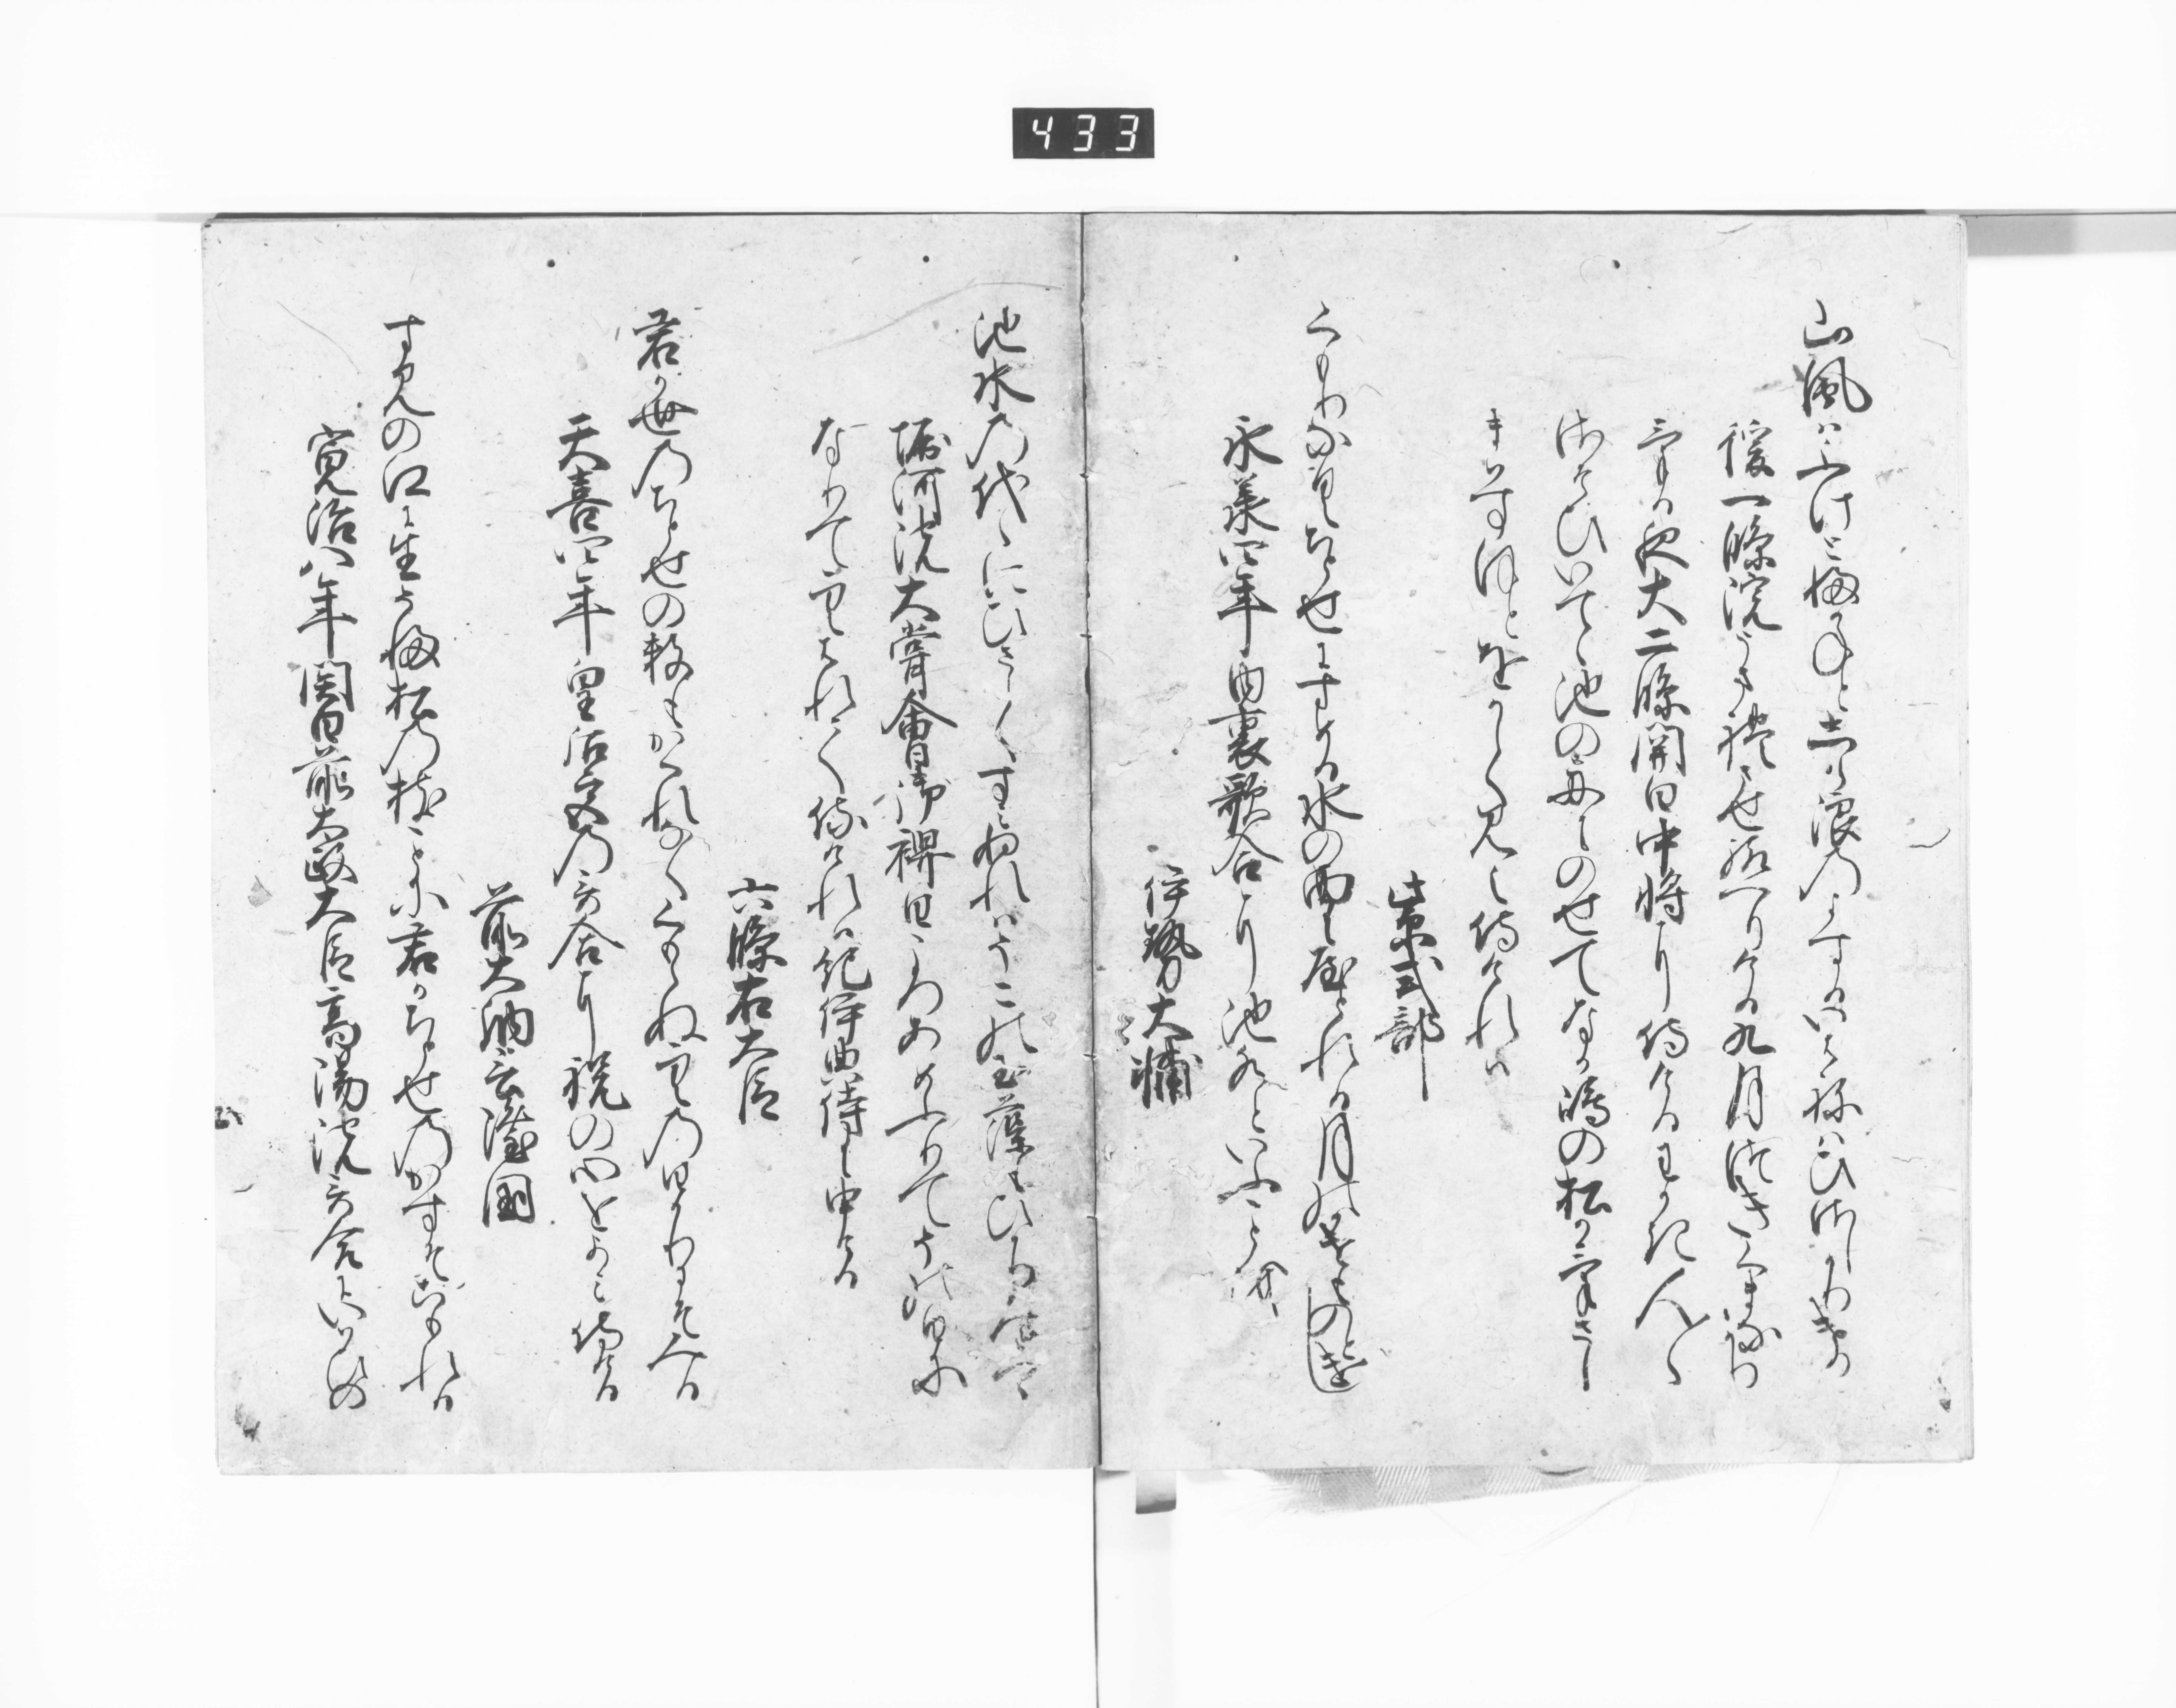 433
山風はふけとふかねとしら浪のよするいはねはひさしかりけり
後一條院うまれさせ給へりける九月つきくまなかり
ける夜大二條関白中将に侍けるわかき人〻
さそひいてゝ池の舟にのせてなか嶋の松かけさし
まはすほとをかしく見え侍けれは
紫式部
くもりなくちとせにすめる水の面にやとれる月のかけものとけし
永承四年内裏歌合に池水といふことを
伊勢大輔
池水の代ゝにひさしくすみぬれはそこの玉藻もひかり見えけり
堀河院大嘗會御禊日ころあめふりてその日に
なりてそらはれて侍けれは紀伊典侍に申ける
六條右大臣
君か世のちとせの数もかくれなくくもらぬそらのひかりにそみる
天喜四年皇后宮の哥合に祝の心をよみ侍ける
前大納言隆国
すみの江に生そふ松の枝ことに君かちとせのかすそこもれる
寛治八年関白前太政大臣高陽院哥合にいはひの